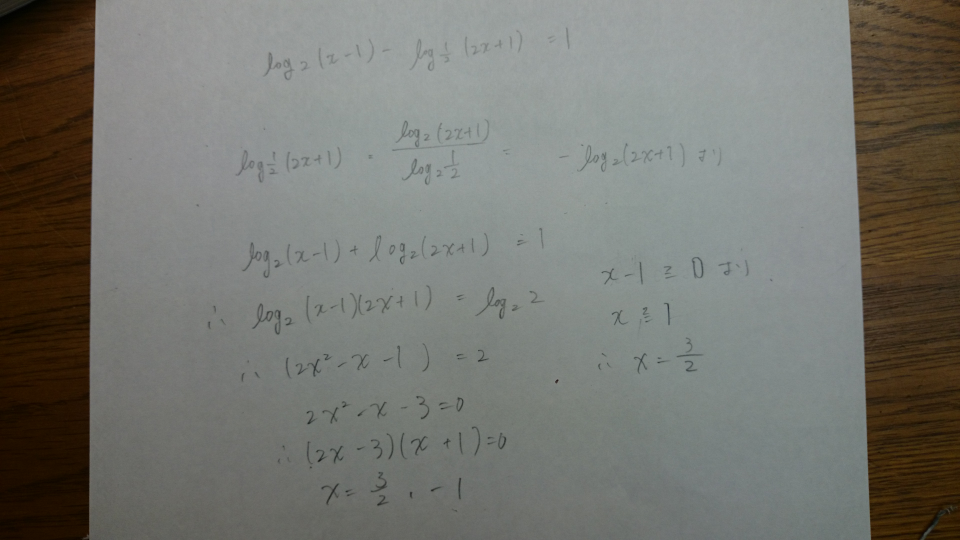 log₂(x-1) - log½(2x+1) = 1
log½(2x+1) = log₂(2x+1)/log₂½ = -log₂(2x+1) より
log₂(x-1) + log₂(2x+1) = 1
∴ log₂(x-1)(2x+1) = log₂2
∴ (2x²-x-1) = 2
2x²-x-3=0
∴ (2x-3)(x+1)=0
x = 3/2, -1
x-1 ≧ 0 より
x ≧ 1
∴ x = 3/2